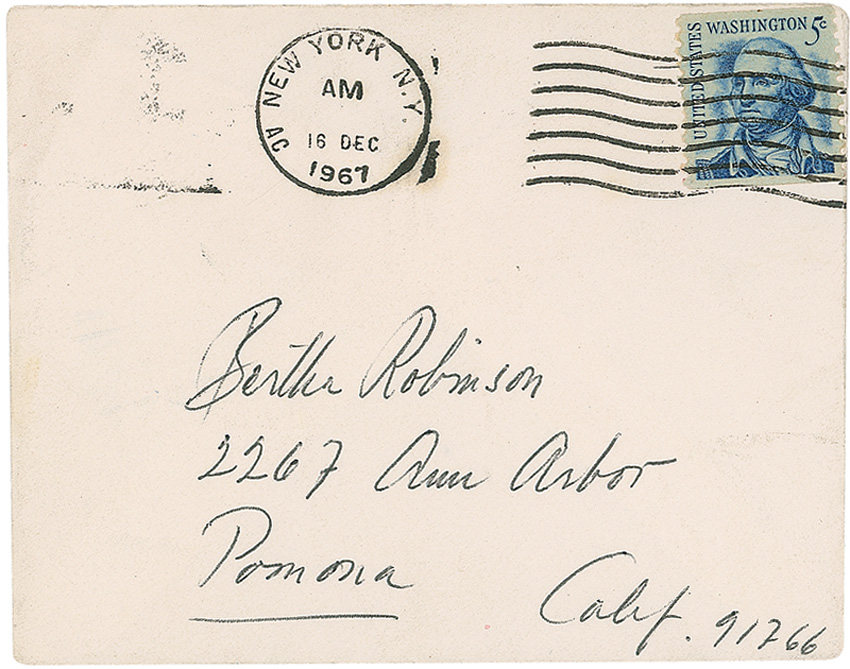 NEW YORK N.Y.
AM
16 DEC
1967
UNITED STATES
WASHINGTON 5c
Bertha Robinson
2267 Ann Arbor
Pomona
Calif. 91766